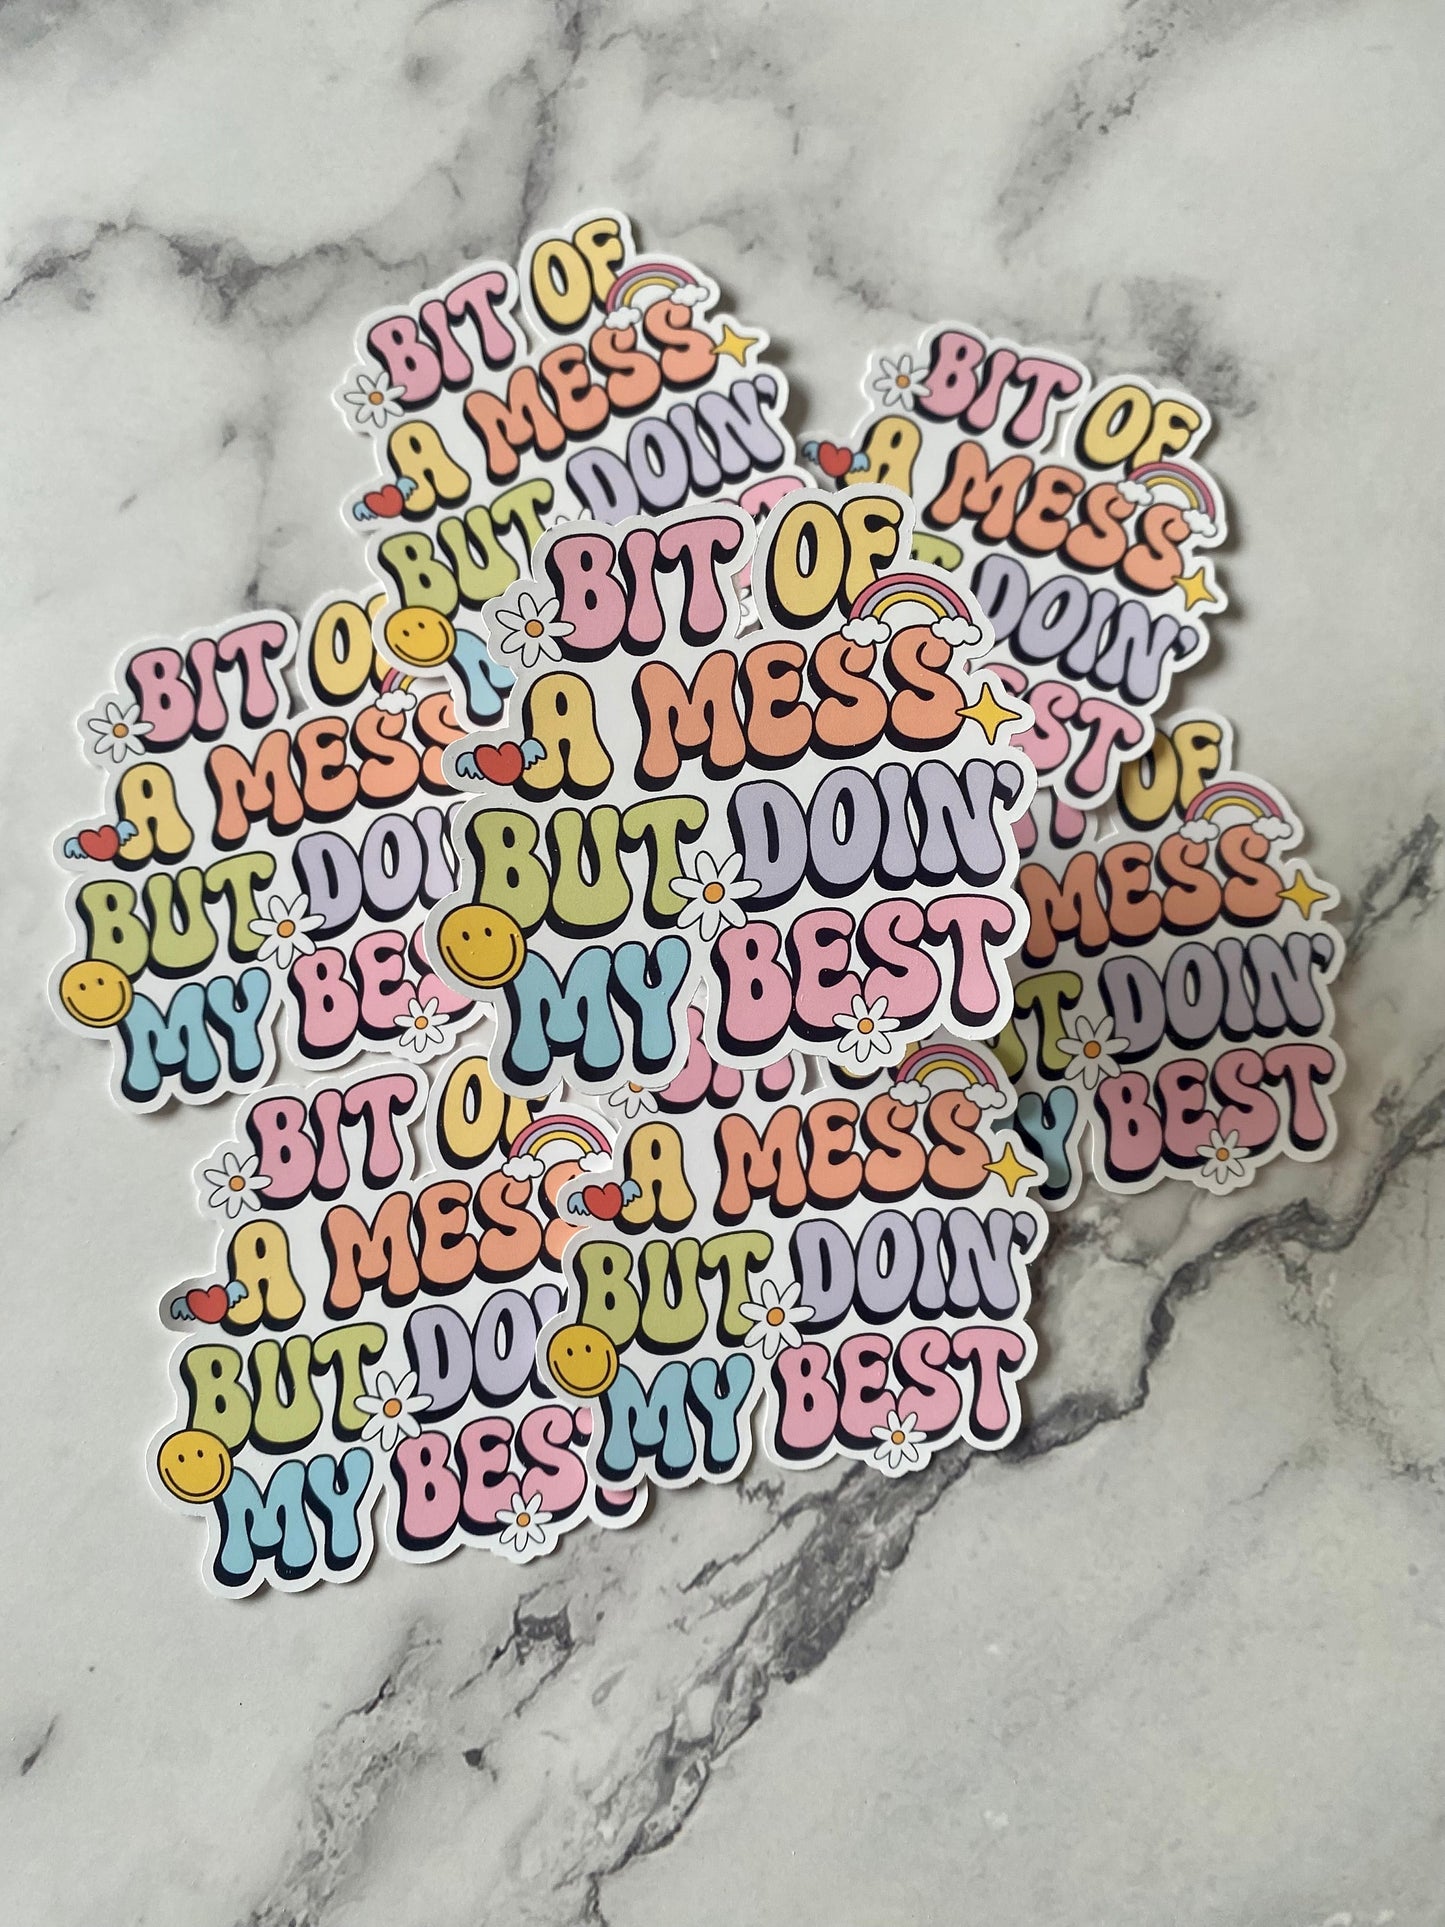 BIT OF
A MESS
BUT DOIN'
BIT OF
A MESS
DOIN'
ST
BIT O
A MESS
BUT DOI
MY BES
BIT OF
A MESS
BUT DOIN'
MY BEST
OF
MESS
DOIN'
Y BEST
BIT OF
A MESS
BUT DOI
MY BEST
BIT
A MESS
BUT DOIN'
MY BEST